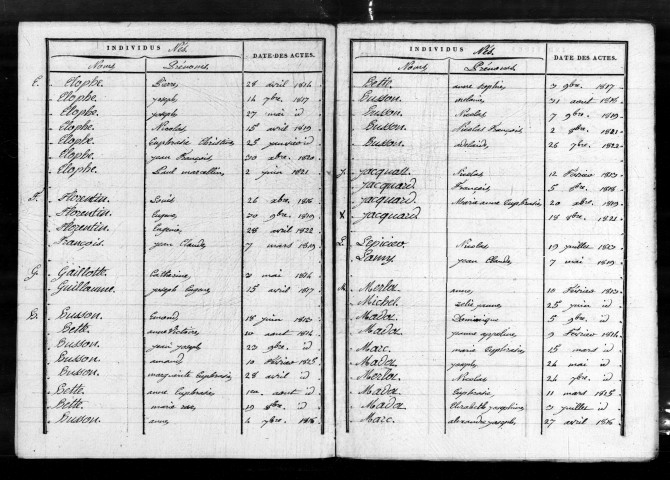 INDIVIDUS Nés.
DATE DES ACTES.
Noms Prénoms.
E. Elophe. Pierre 28 avril 1814
Elophe. joseph 14 7bre 1817
Elophe. joseph 27 mai id
Elophe. Nicolas 15 avril 1819
Elophe. Euphrasie Christine 25 janvier id
Elophe. jean François 30 1820
Elophe. Paul marcellin 2 juin 1821
F. Florentin. Louis 26 1816
Florentin. 20 9bre 1819
Florentin. Eugénie 28 avril 1822
François. jean Claude 7 mars 1819
G. Gaillott. Catherine 2 mai 1814
Guillaume. joseph 15 avril 1817
Husson. 18 juin
Hette. anne Victoire août 1814
Husson. jean joseph 23 9bre id
Husson. amand 10 Février 1815
Husson. marguerite Euphrasie 28 avril id
Hette. anne Euphrasie 1er août id
Hette. marie 19 8bre id
Husson. anne 4 7bre 1816
INDIVIDUS Nés.
DATE DES ACTES.
Noms. Prénoms.
Hette. anne Sophie 9bre 1817
Husson. août 1818
Husson. Nicolas 7 9bre 1819
Husson. Nicolas François 2 8bre 1821
Husson. adelaïde 26 7bre 1822
J. Jacquard. Nicolas 12 Février
Jacquard. François 5 1818
Jacquard. Maria anne Euphrasie 20 1819
X Jacquard 18 8bre 1821
L. Nicolas 19 juillet
Lamy. jean Claude 7 mai 1819
M. Merlot. anne 10 Février
Michel. 25 juin id
Mada. Dominique 5 9bre id
Mada. jeanne appoline 9 Février 1814
Marc. marie Euphrasie 15 mars id
Mada. joseph 24 mai id
Merlot. Nicolas 24 7bre id
Mada. Euphrasie 11 mars 1815
Mada. Elisabeth joséphine 2 juillet id
Marc. alexandre joseph 27 avril 1816